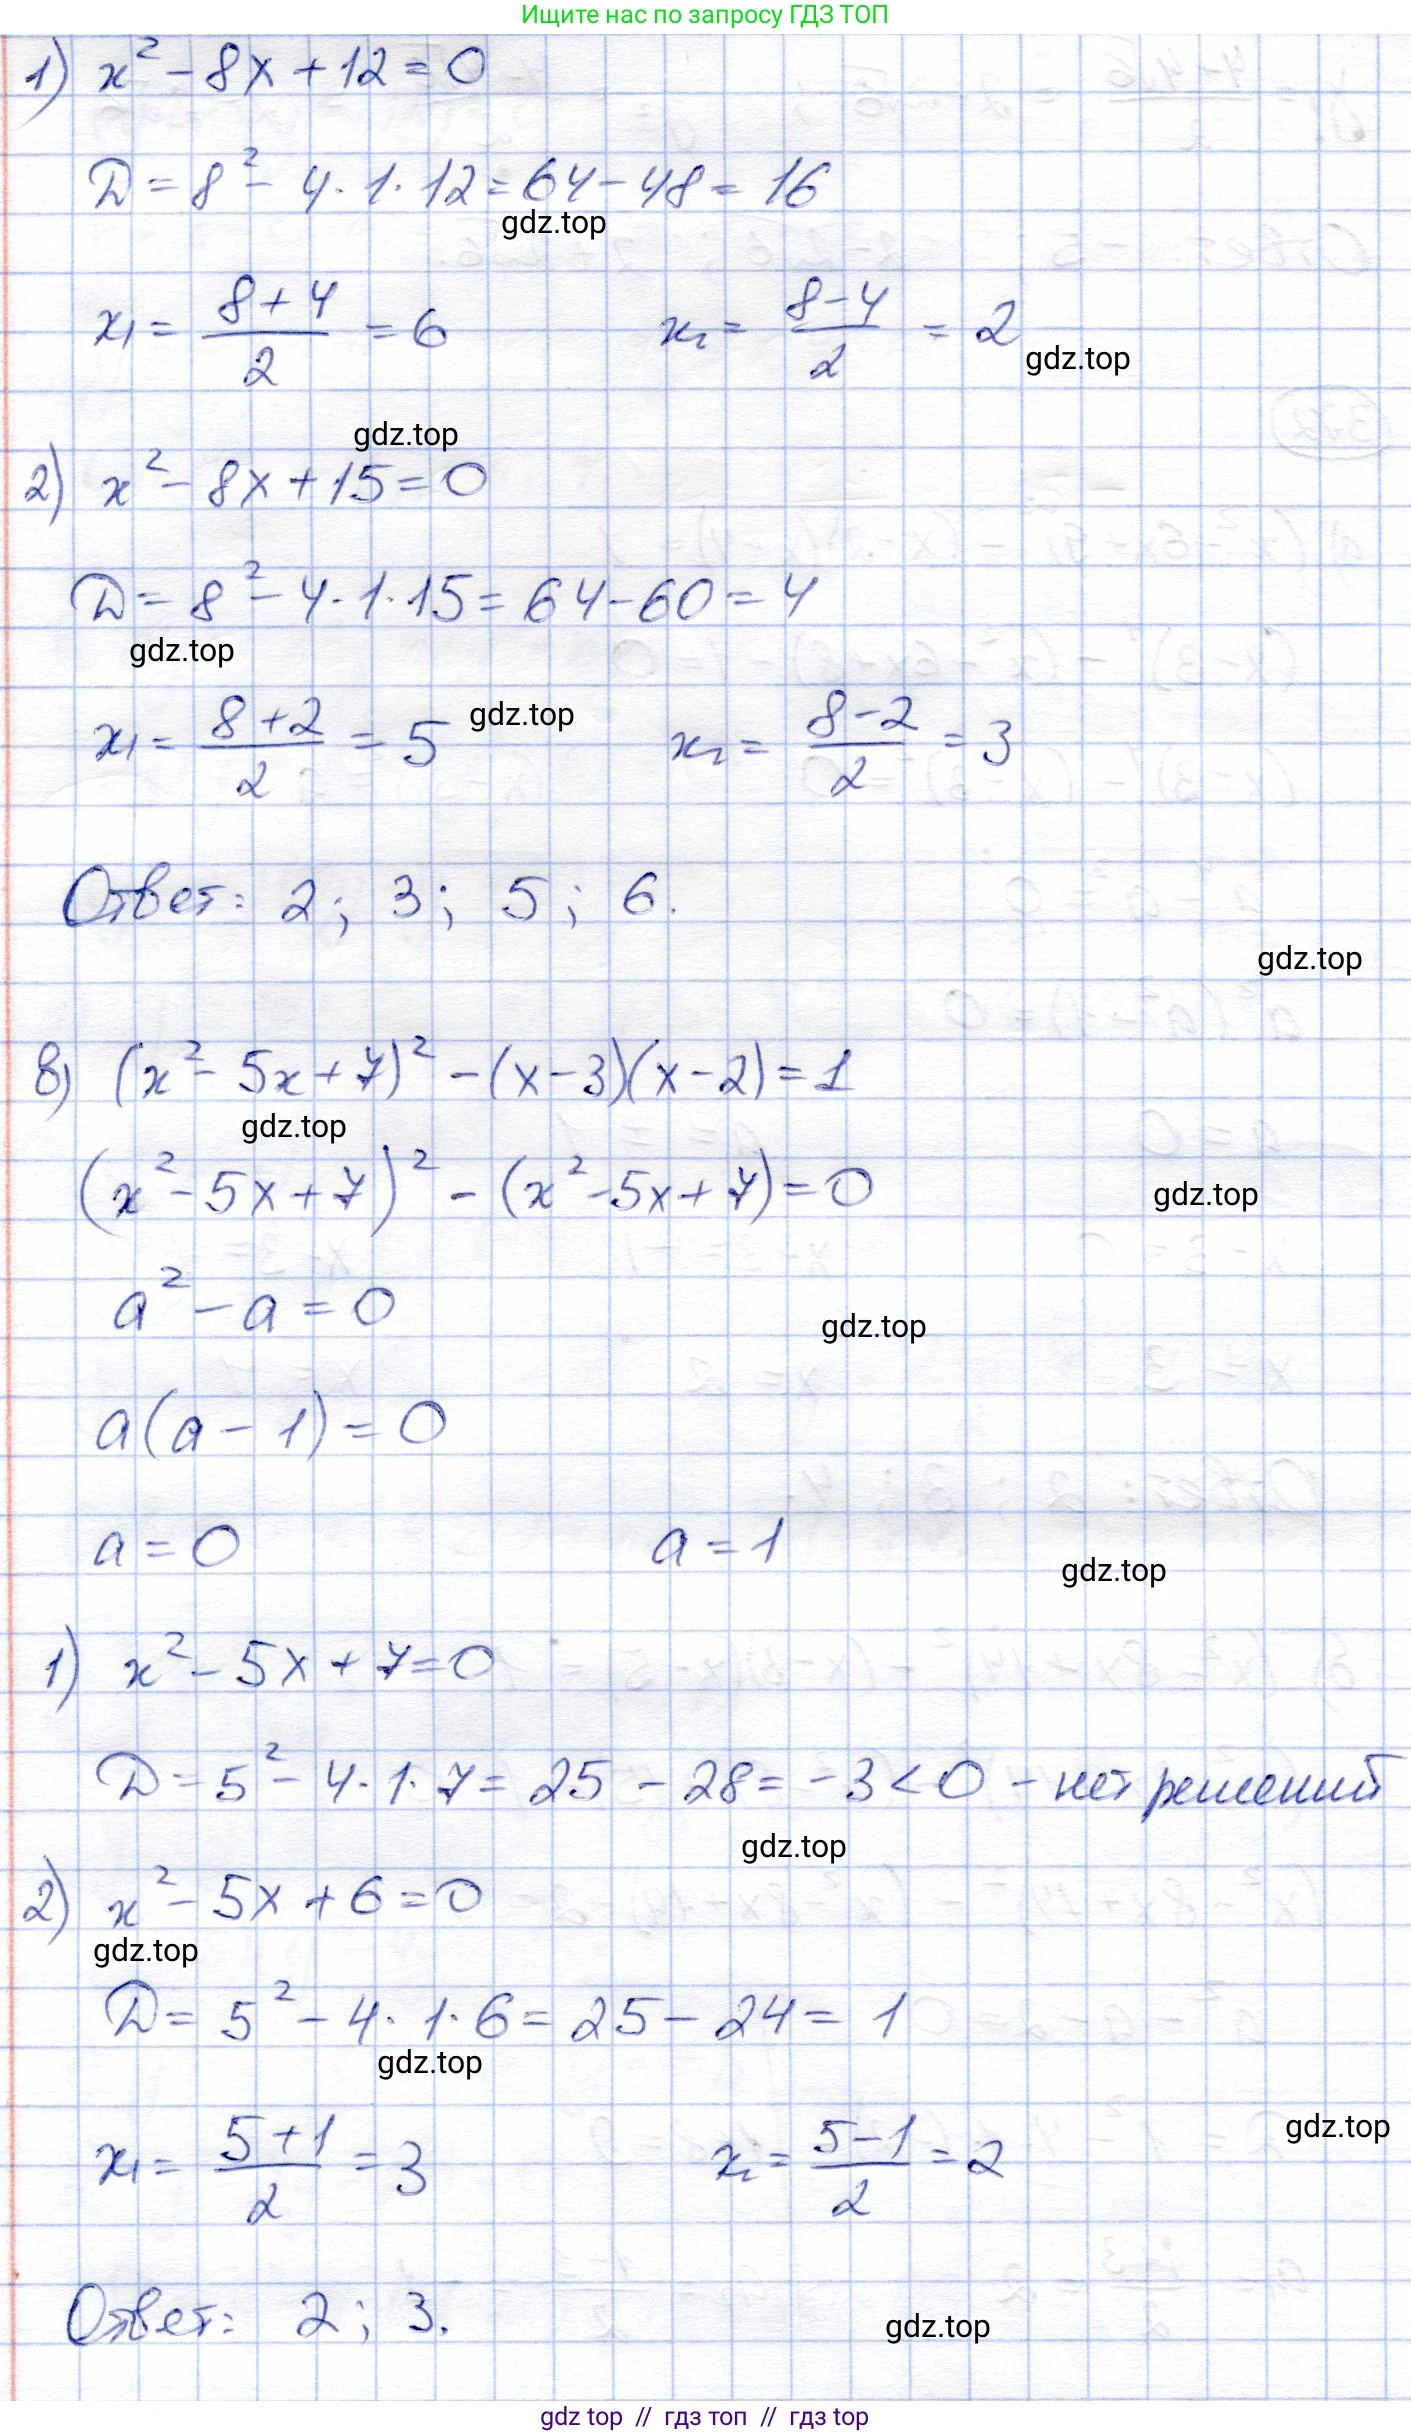 Ищите нас по запросу ГДЗ ТОП
1) x² - 8x + 12 = 0
D = 8² - 4 · 1 · 12 = 64 - 48 = 16
gdz.top
x₁ = (8 + 4)/2 = 6 x₂ = (8 - 4)/2 = 2
gdz.top
gdz.top
2) x² - 8x + 15 = 0
D = 8² - 4 · 1 · 15 = 64 - 60 = 4
gdz.top
x₁ = (8 + 2)/2 = 5 gdz.top x₂ = (8 - 2)/2 = 3
Ответ: 2; 3; 5; 6.
gdz.top
в) (x² - 5x + 7)² - (x - 3)(x - 2) = 1
gdz.top
(x² - 5x + 7)² - (x² - 5x + 7) = 0
gdz.top
a² - a = 0
gdz.top
a(a - 1) = 0
a = 0 a = 1
gdz.top
1) x² - 5x + 7 = 0
D = 5² - 4 · 1 · 7 = 25 - 28 = -3 < 0 - нет решений
gdz.top
2) x² - 5x + 6 = 0
gdz.top
D = 5² - 4 · 1 · 6 = 25 - 24 = 1
gdz.top
gdz.top
x₁ = (5 + 1)/2 = 3 x₂ = (5 - 1)/2 = 2
Ответ: 2; 3.
gdz.top
gdz top // гдз топ // гдз top